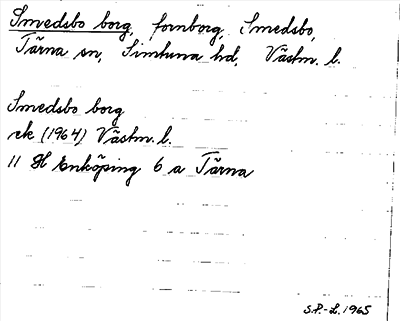 Smedsbo borg, fornborg, Smedsbo,
Tärna sn, Simtuna hd, Västm. l.
Smedsbo borg
ek (1964) Västm. l.
11 H Enköping 6 a Tärna
S.P.-L. 1965